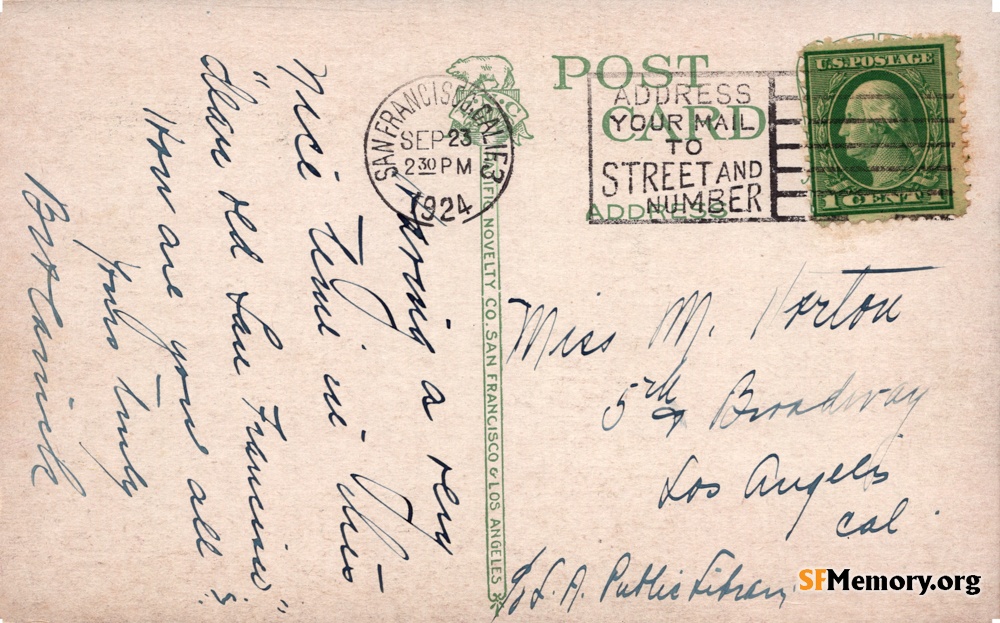 POST CARD
ADDRESS
SAN FRANCISCO, CALIF. 3
SEP 23
2 30 PM
1924
ADDRESS
YOUR MAIL
TO
STREET AND
NUMBER
U.S. POSTAGE
1 CENT 1
PACIFIC NOVELTY CO. SAN FRANCISCO & LOS ANGELES
Having a very
nice time in this
"dear old San Francisco"
How are you all?
Yours truly
Miss M. Horton
5th & Broadway
Los Angeles
Cal.
c/o L. A. Public Library
SFMemory.org